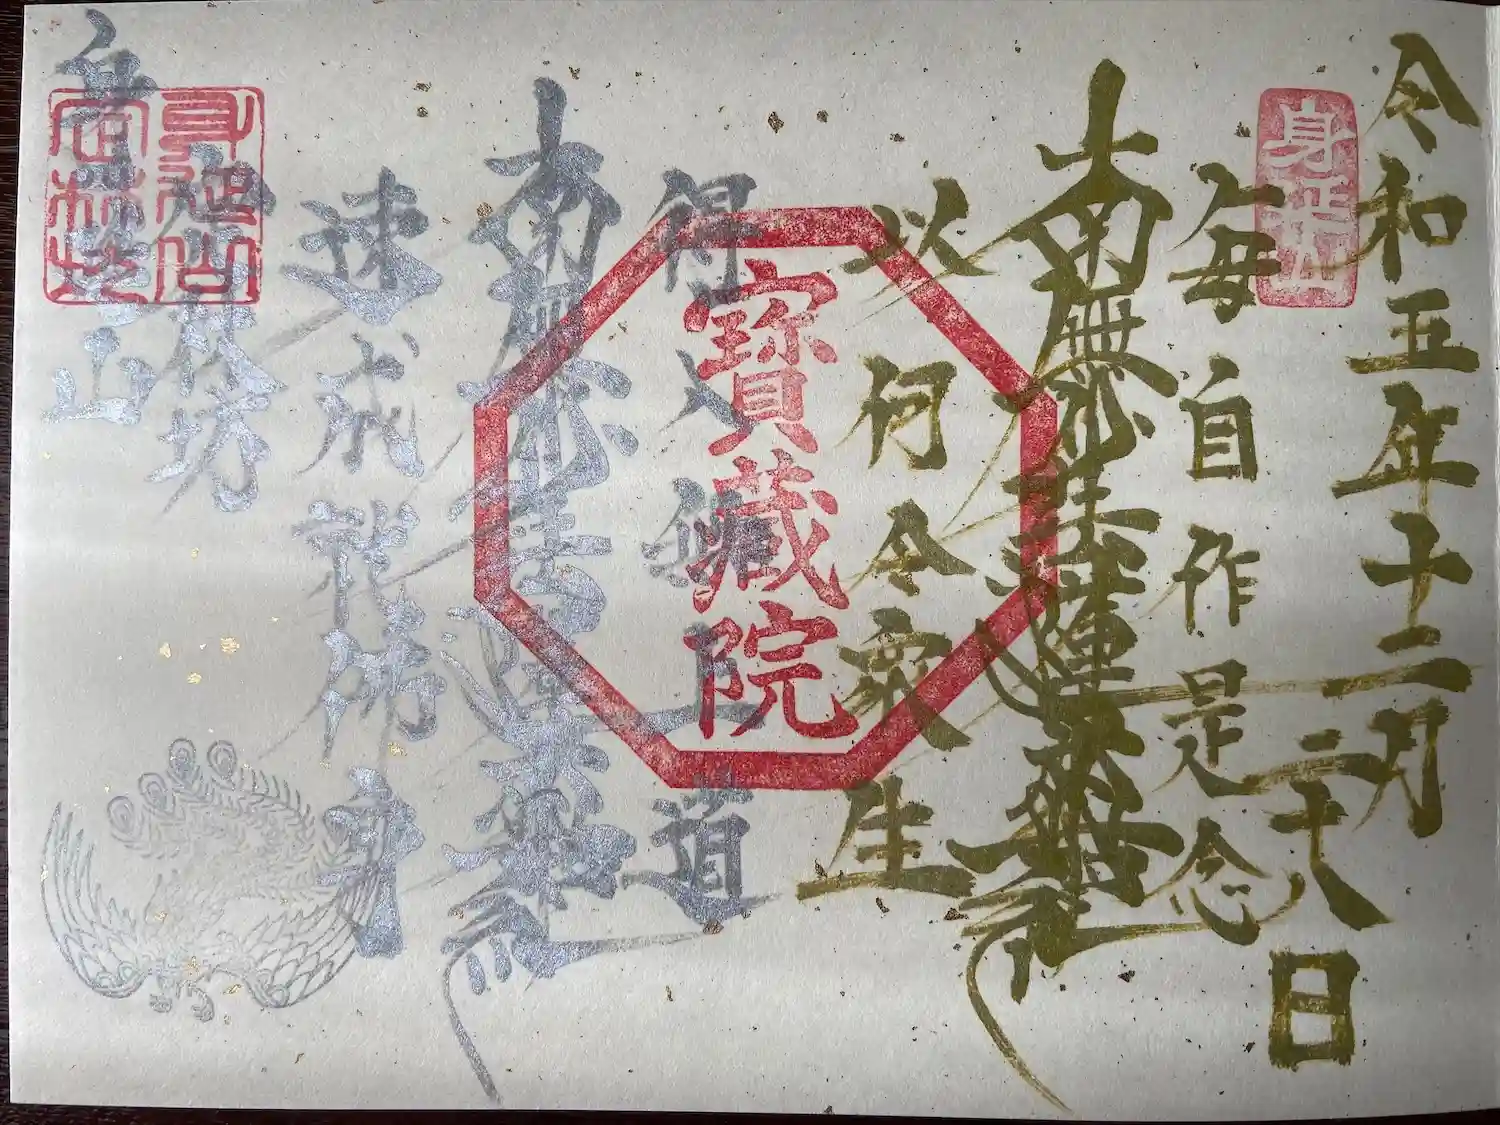 令和五年十二月
二十八日
身延山
毎自作是念
南無妙法蓮華経
以何令衆生
寶藏院
得入無上道
南無妙法蓮華経
速成就佛身
定林坊
身延山
身延山
定林坊